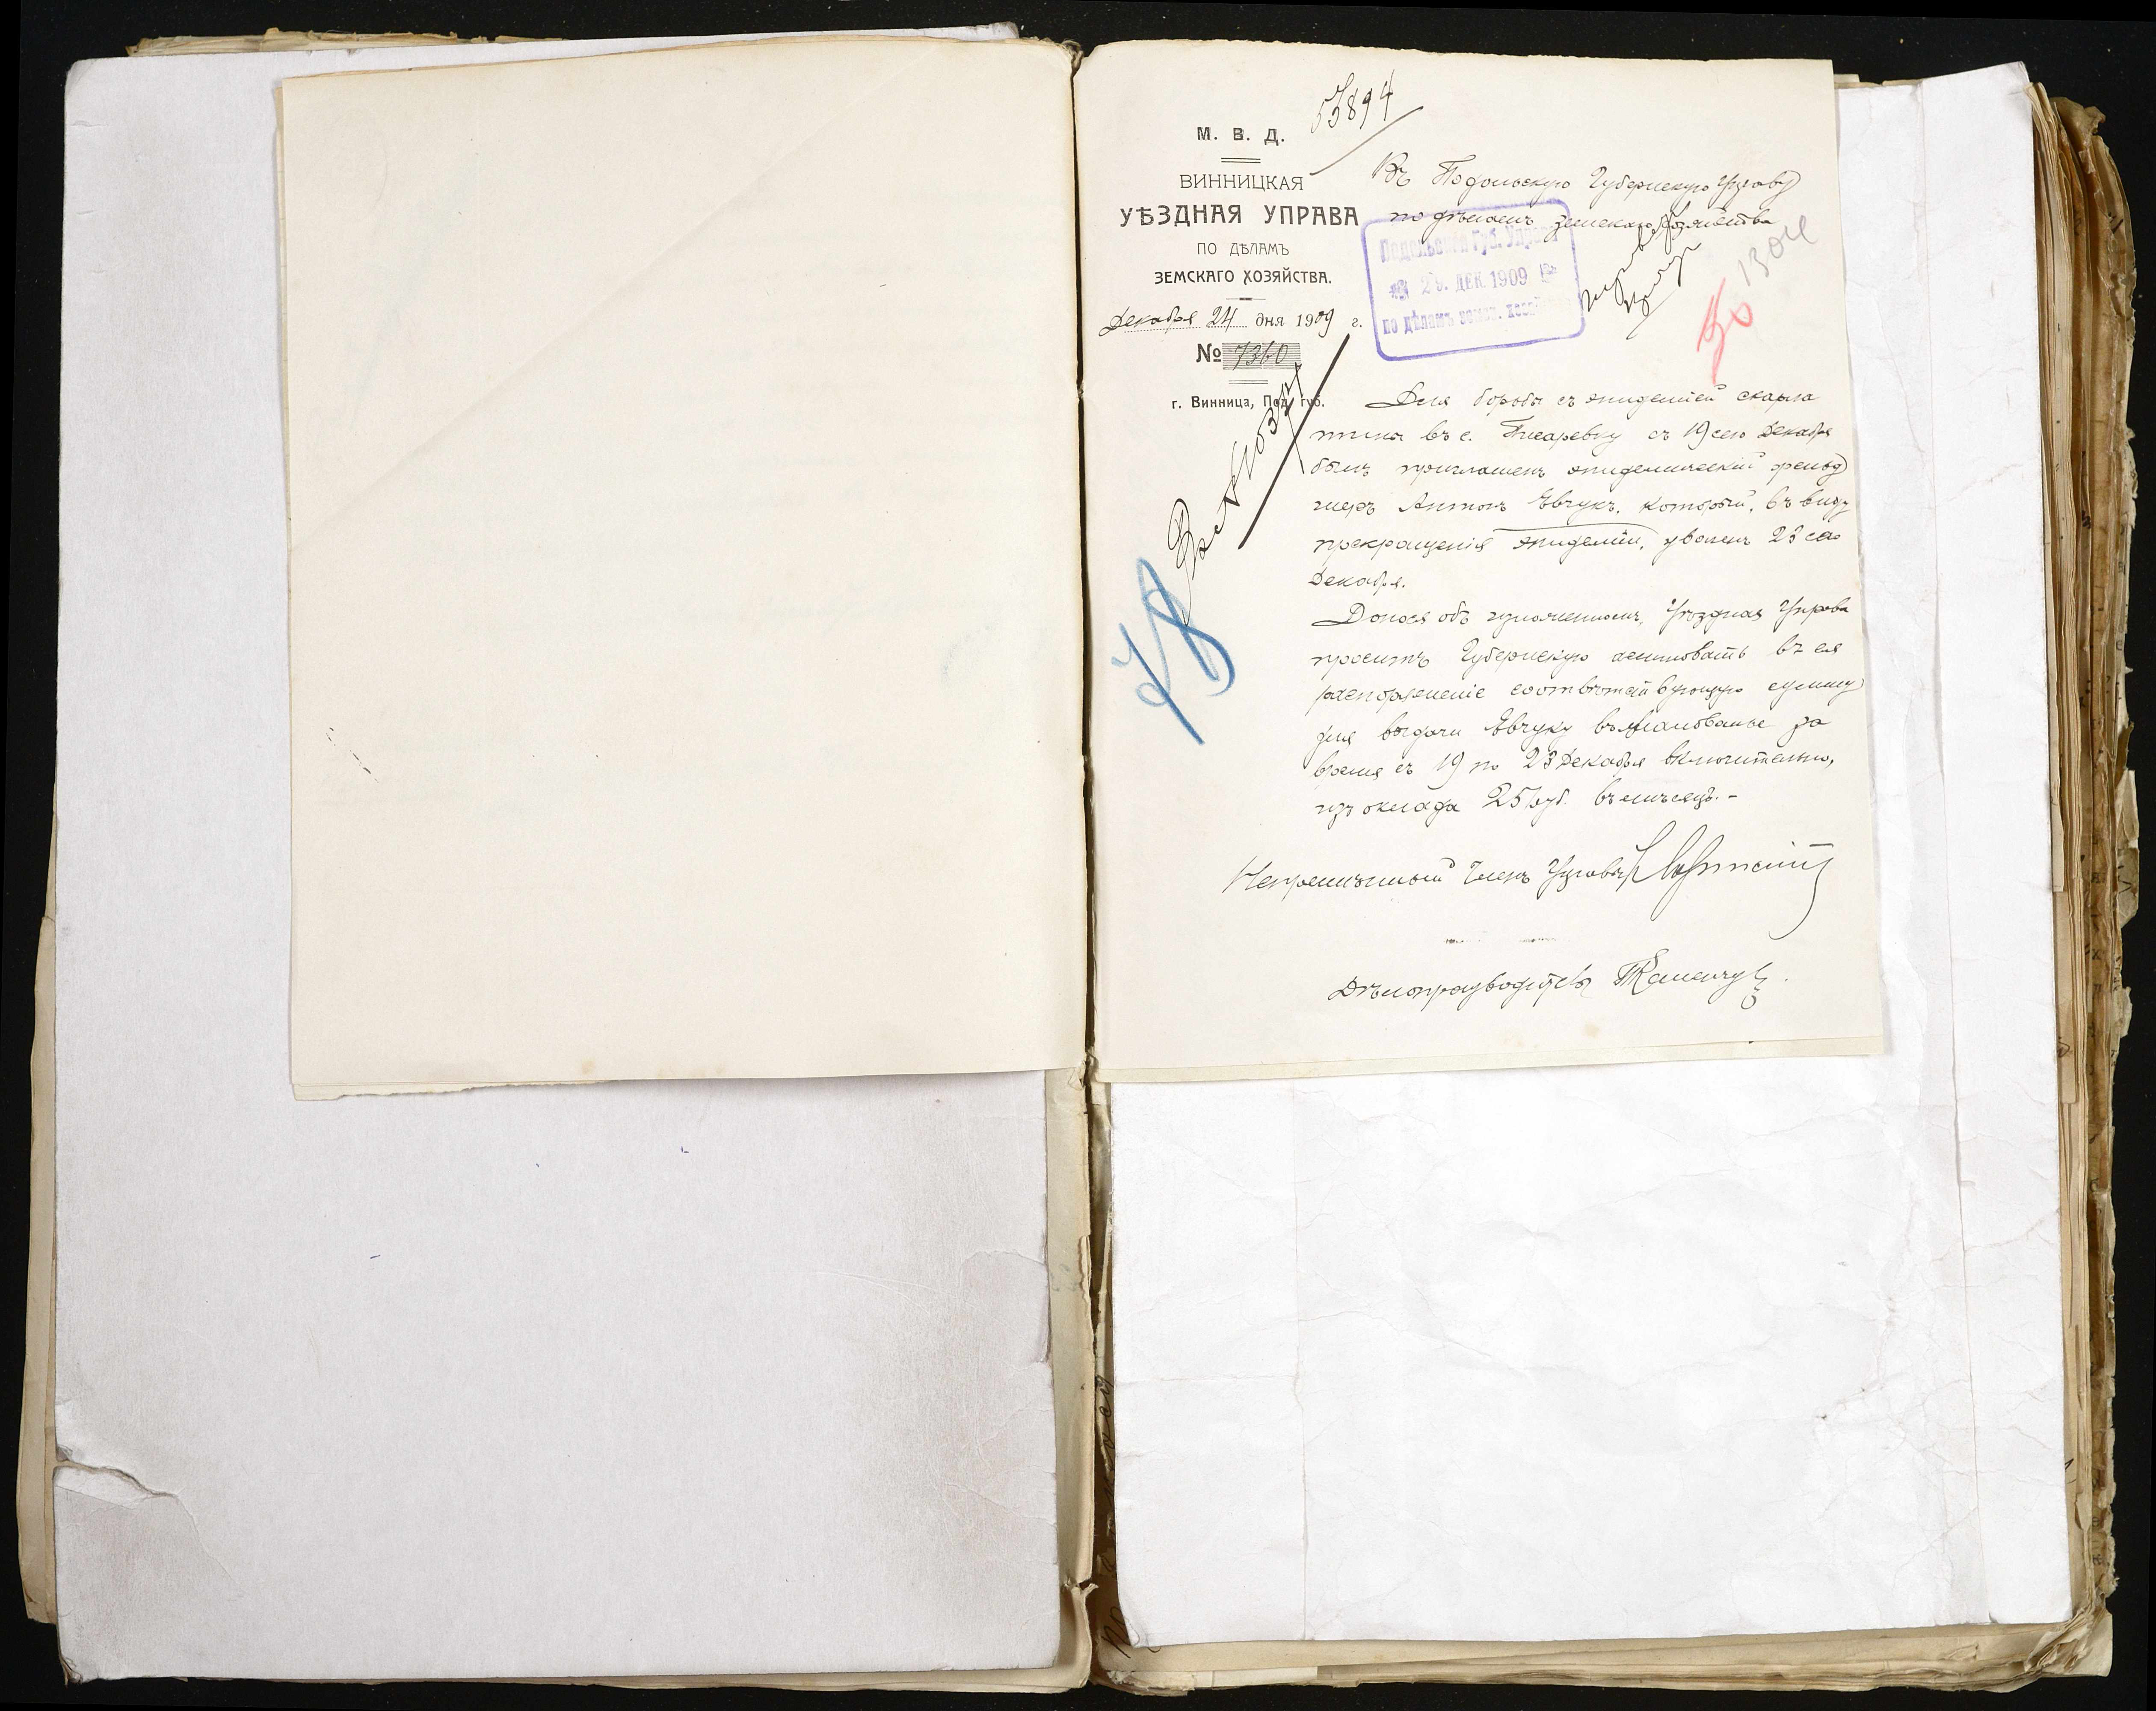 53894
М. В. Д.
ВИННИЦКАЯ
УѢЗДНАЯ УПРАВА
ПО ДѢЛАМЪ
ЗЕМСКАГО ХОЗЯЙСТВА.
Декабря 24 дня 1909 г.
№ 7360
г. Винница, Под. губ.
Въ Подольскую Губернскую Управу
по дѣламъ Земскаго Хозяйства
Подольская Губ. Управа
29. ДЕК. 1909
по дѣламъ земск. хозяйства
1304
78
Для борьбы съ эпидеміей скарла
тины въ с. Писаревку съ 19 сего Декабря
былъ приглашенъ эпидемическій фельд
шеръ Антонъ Евчукъ, который, въ виду
прекращенія эпидеміи, уволенъ 23 сего
Декабря.
Донося объ изложенномъ, Уѣздная Управа
проситъ Губернскую ассигновать въ ея
распоряженіе соотвѣтствующую сумму
для выдачи Евчуку въ жалованье за
время съ 19 по 23 Декабря включительно,
изъ оклада 25 руб. въ мѣсяцъ.-
Непремѣнный Членъ Управы
Дѣлопроизводитель